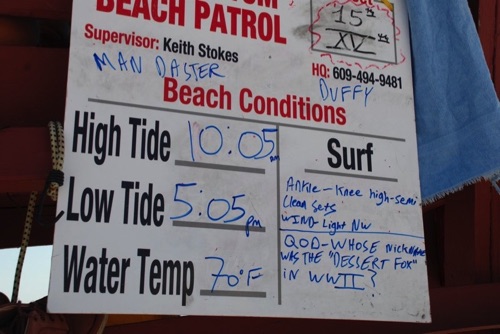 BEACH PATROL
15
XV
Supervisor: Keith Stokes
MAN DASTER
HQ: 609-494-9481
DUFFY
Beach Conditions
High Tide 10:05 am
Low Tide 5:05 pm
Water Temp 70°F
Surf
Ankle-Knee high-semi
Clean Sets
WIND-Light NW
QOD-WHOSE Nickname
WAS THE "DESSERT FOX"
iN WWII?